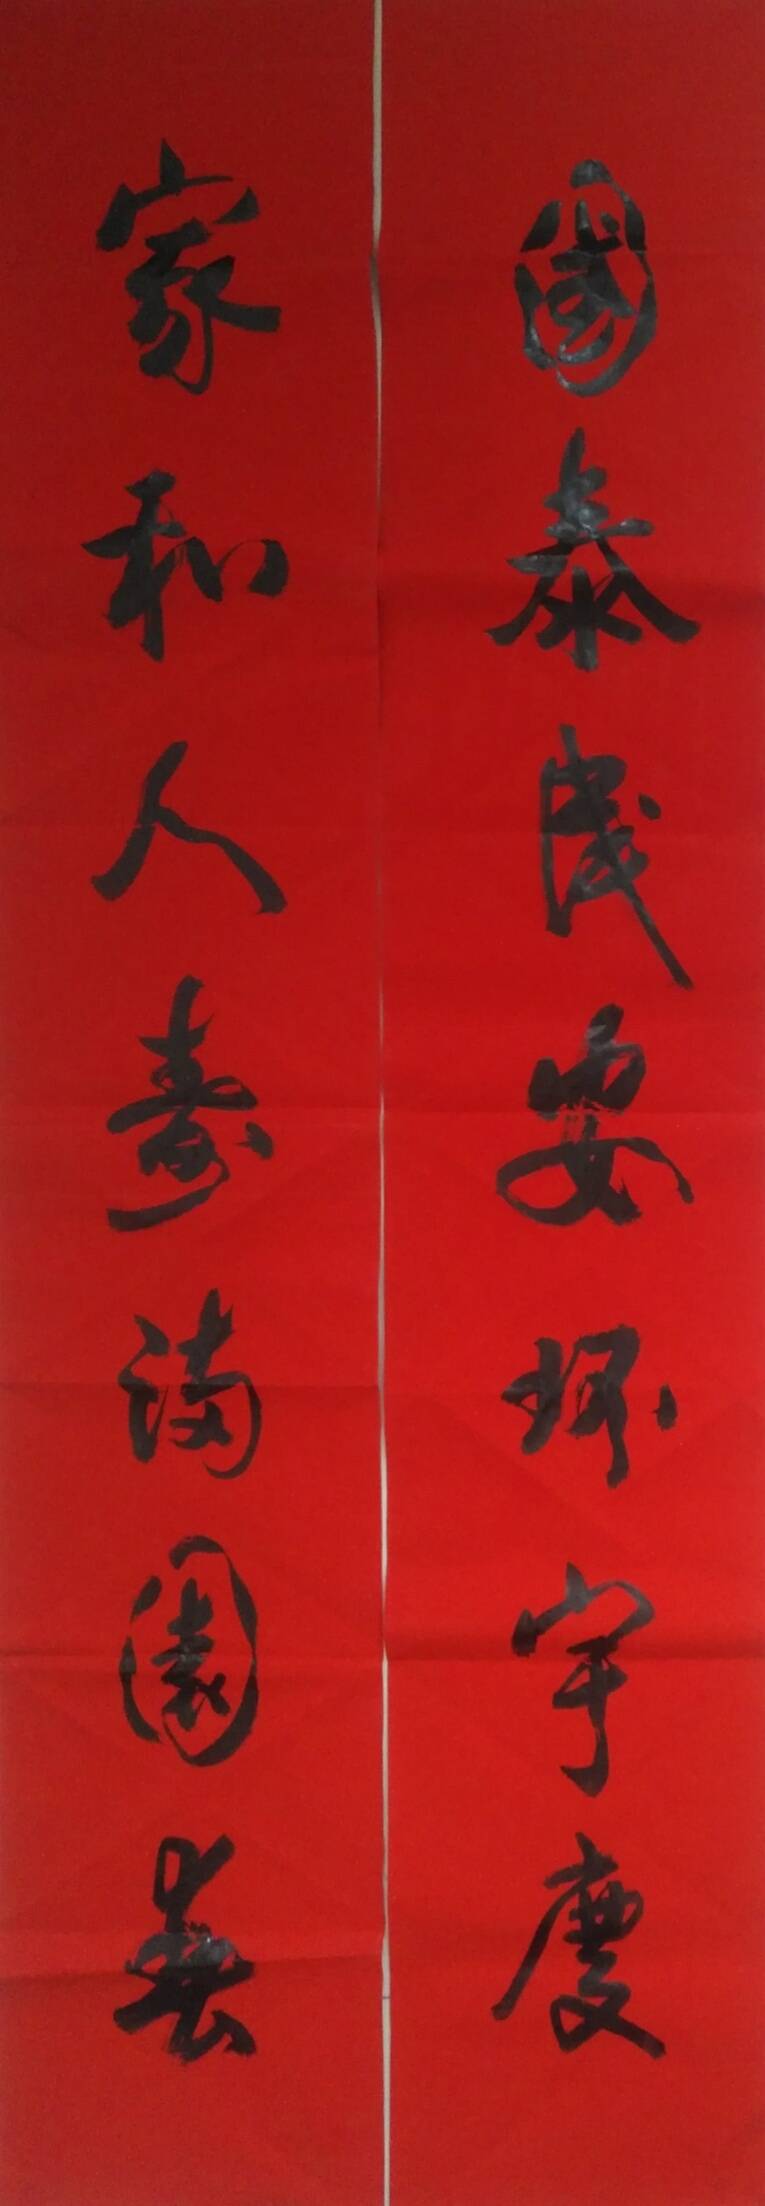 國泰民安环宇慶
家和人壽滿園春